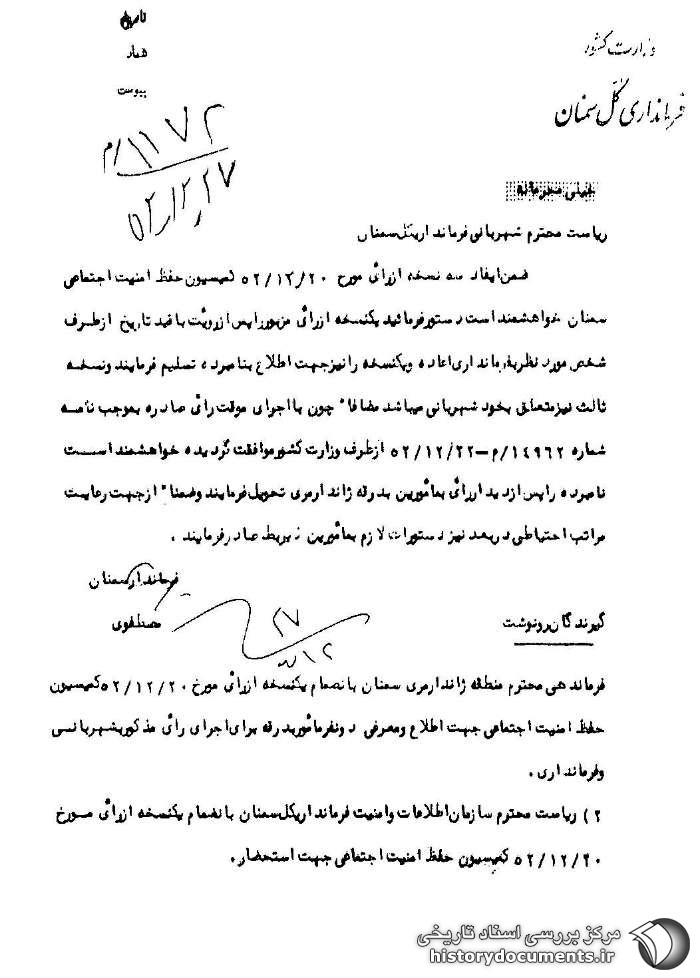 وزارت کشور
فرمانداری کل سمنان
تاریخ
شماره
پیوست
۱۱۷۲/م
۵۲/۱۲/۲۷
خیلی محرمانه
ریاست محترم شهربانی فرمانداریکل سمنان
ضمن ایفاد سه نسخه از رأی مورخ ۵۲/۱۲/۲۰ کمیسیون حفظ امنیت اجتماعی
سمنان خواهشمند است دستور فرمائید یکنسخه از رأی مزبور پس از رؤیت با قید تاریخ از طرف
شخص مورد نظر بفرمانداری اعاده و یکنسخه را نیز جهت اطلاع بنامبرده تسلیم فرمایند و نسخه
ثالث نیز متعلق بخود شهربانی میباشد مضافا" چون با اجرای موقت رأی صادره بموجب نامه
شماره ۱۴۹۶۲/م-۵۲/۱۲/۲۲ از طرف وزارت کشور موافقت گردیده خواهشمند است
نامبرده را پس از دید از رأی بمأمورین بدرقه ژاندارمری تحویل فرمایند وضمنا" از جهت رعایت
مراتب احتیاطی در بعد نیز دستورات لازم بمأمورین ذیربط صادر فرمایند .
فرماندار سمنان
مصطفوی
۲۷
۱۲
گیرندگان رونوشت
فرماندهی محترم منطقه ژاندارمری سمنان بانضمام یکنسخه از رأی مورخ ۵۲/۱۲/۲۰ کمیسیون
حفظ امنیت اجتماعی جهت اطلاع ومعرفی دونفر مأمور بدرقه برای اجرای رأی مذکور بشهربانی
وفرمانداری .
۲) ریاست محترم سازمان اطلاعات وامنیت فرمانداریکل سمنان بانضمام یکنسخه از رأی مورخ
۵۲/۱۲/۲۰ کمیسیون حفظ امنیت اجتماعی جهت استحضار .
مرکز بررسی اسناد تاریخی
historydocuments.ir